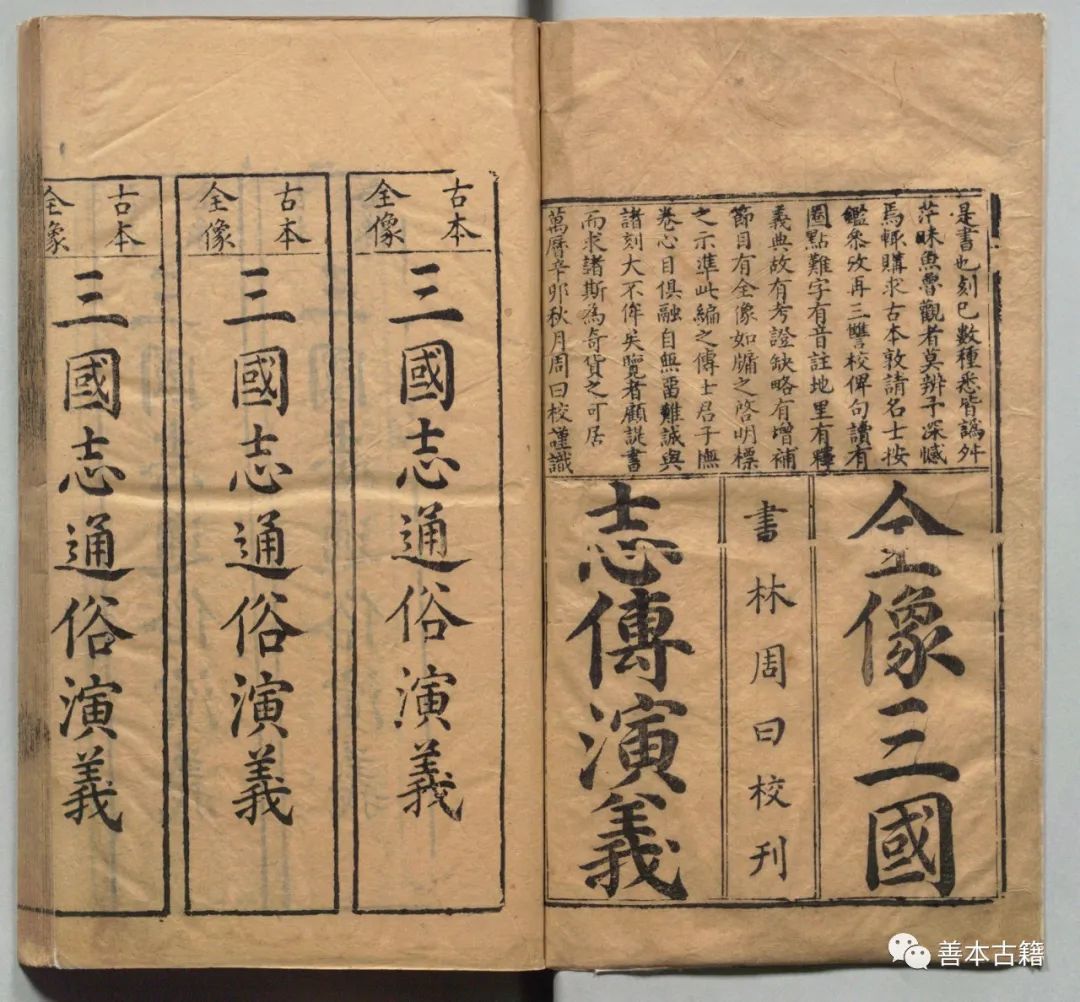 是書也刻已數種悉皆譌舛
茫昧魚魯觀者莫辨予深憾
焉輒購求古本敦請名士按
鑑參攷再三讐校俾句讀有
圈點難字有音註地里有釋
義典故有考證缺略有增補
節目有全像如牖之啓明標
之示準此編之傳士君子撫
卷心目俱融自無畱難誠與
諸刻大不侔矣覽者顧諟書
而求諸斯為奇貨之可居
萬曆辛卯秋月周曰校謹識
全像三國
書林周曰校刊
志傳演義
古本
全像
三國志通俗演義
古本
全像
三國志通俗演義
古本
全像
三國志通俗演義
善本古籍